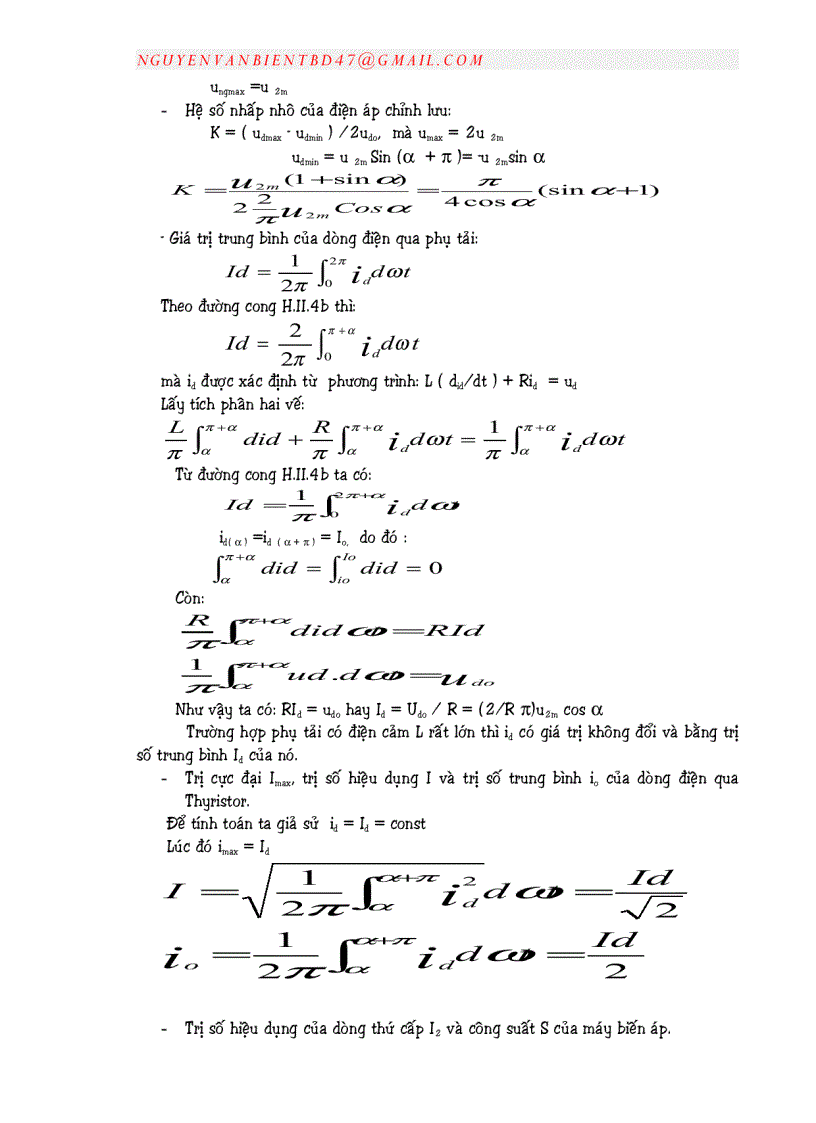 NGUYENVANBIENTBD47@GMAIL.COM
ungmax =u 2m
- Hệ số nhấp nhô của điện áp chỉnh lưu:
K = ( udmax - udmin ) /2udo, mà umax = 2u 2m
udmin = u 2m Sin (α + π )= -u 2msin α
K = u2m(1+sin α) / (2 (2/π) u2m Cos α) = π / (4 cos α) (sin α+1)
- Giá trị trung bình của dòng điện qua phụ tải:
Id = 1/2π ∫₀^2π id dωt
Theo đường cong H.II.4b thì:
Id = 2/2π ∫₀^π+α id dωt
mà id được xác định từ phương trình: L ( did/dt ) + Rid = ud
Lấy tích phân hai vế:
L/π ∫α^π+α did + R/π ∫α^π+α id dωt = 1/π ∫α^π+α id dωt
Từ đường cong H.II.4b ta có:
Id = 1/π ∫₀^2π+α id dωt
id(α) =id (α+π) = Io, do đó :
∫α^π+α did = ∫io^Io did = 0
Còn:
R/π ∫α^π+α did ωt = RId
1/π ∫α^π+α ud.dωt = udo
Như vậy ta có: RId = udo hay Id = Udo / R = (2/R π)u2m cos α
Trường hợp phụ tải có điện cảm L rất lớn thì id có giá trị không đổi và bằng trị
số trung bình Id của nó.
- Trị cực đại Imax, trị số hiệu dụng I và trị số trung bình io của dòng điện qua
Thyristor.
Để tính toán ta giả sử id = Id = const
Lúc đó imax = Id
I = √(1/2π ∫α^α+π id²) dωt = Id/√2
io = 1/2π ∫α^α+π id dωt = Id/2
- Trị số hiệu dụng của dòng thứ cấp I2 và công suất S của máy biến áp.